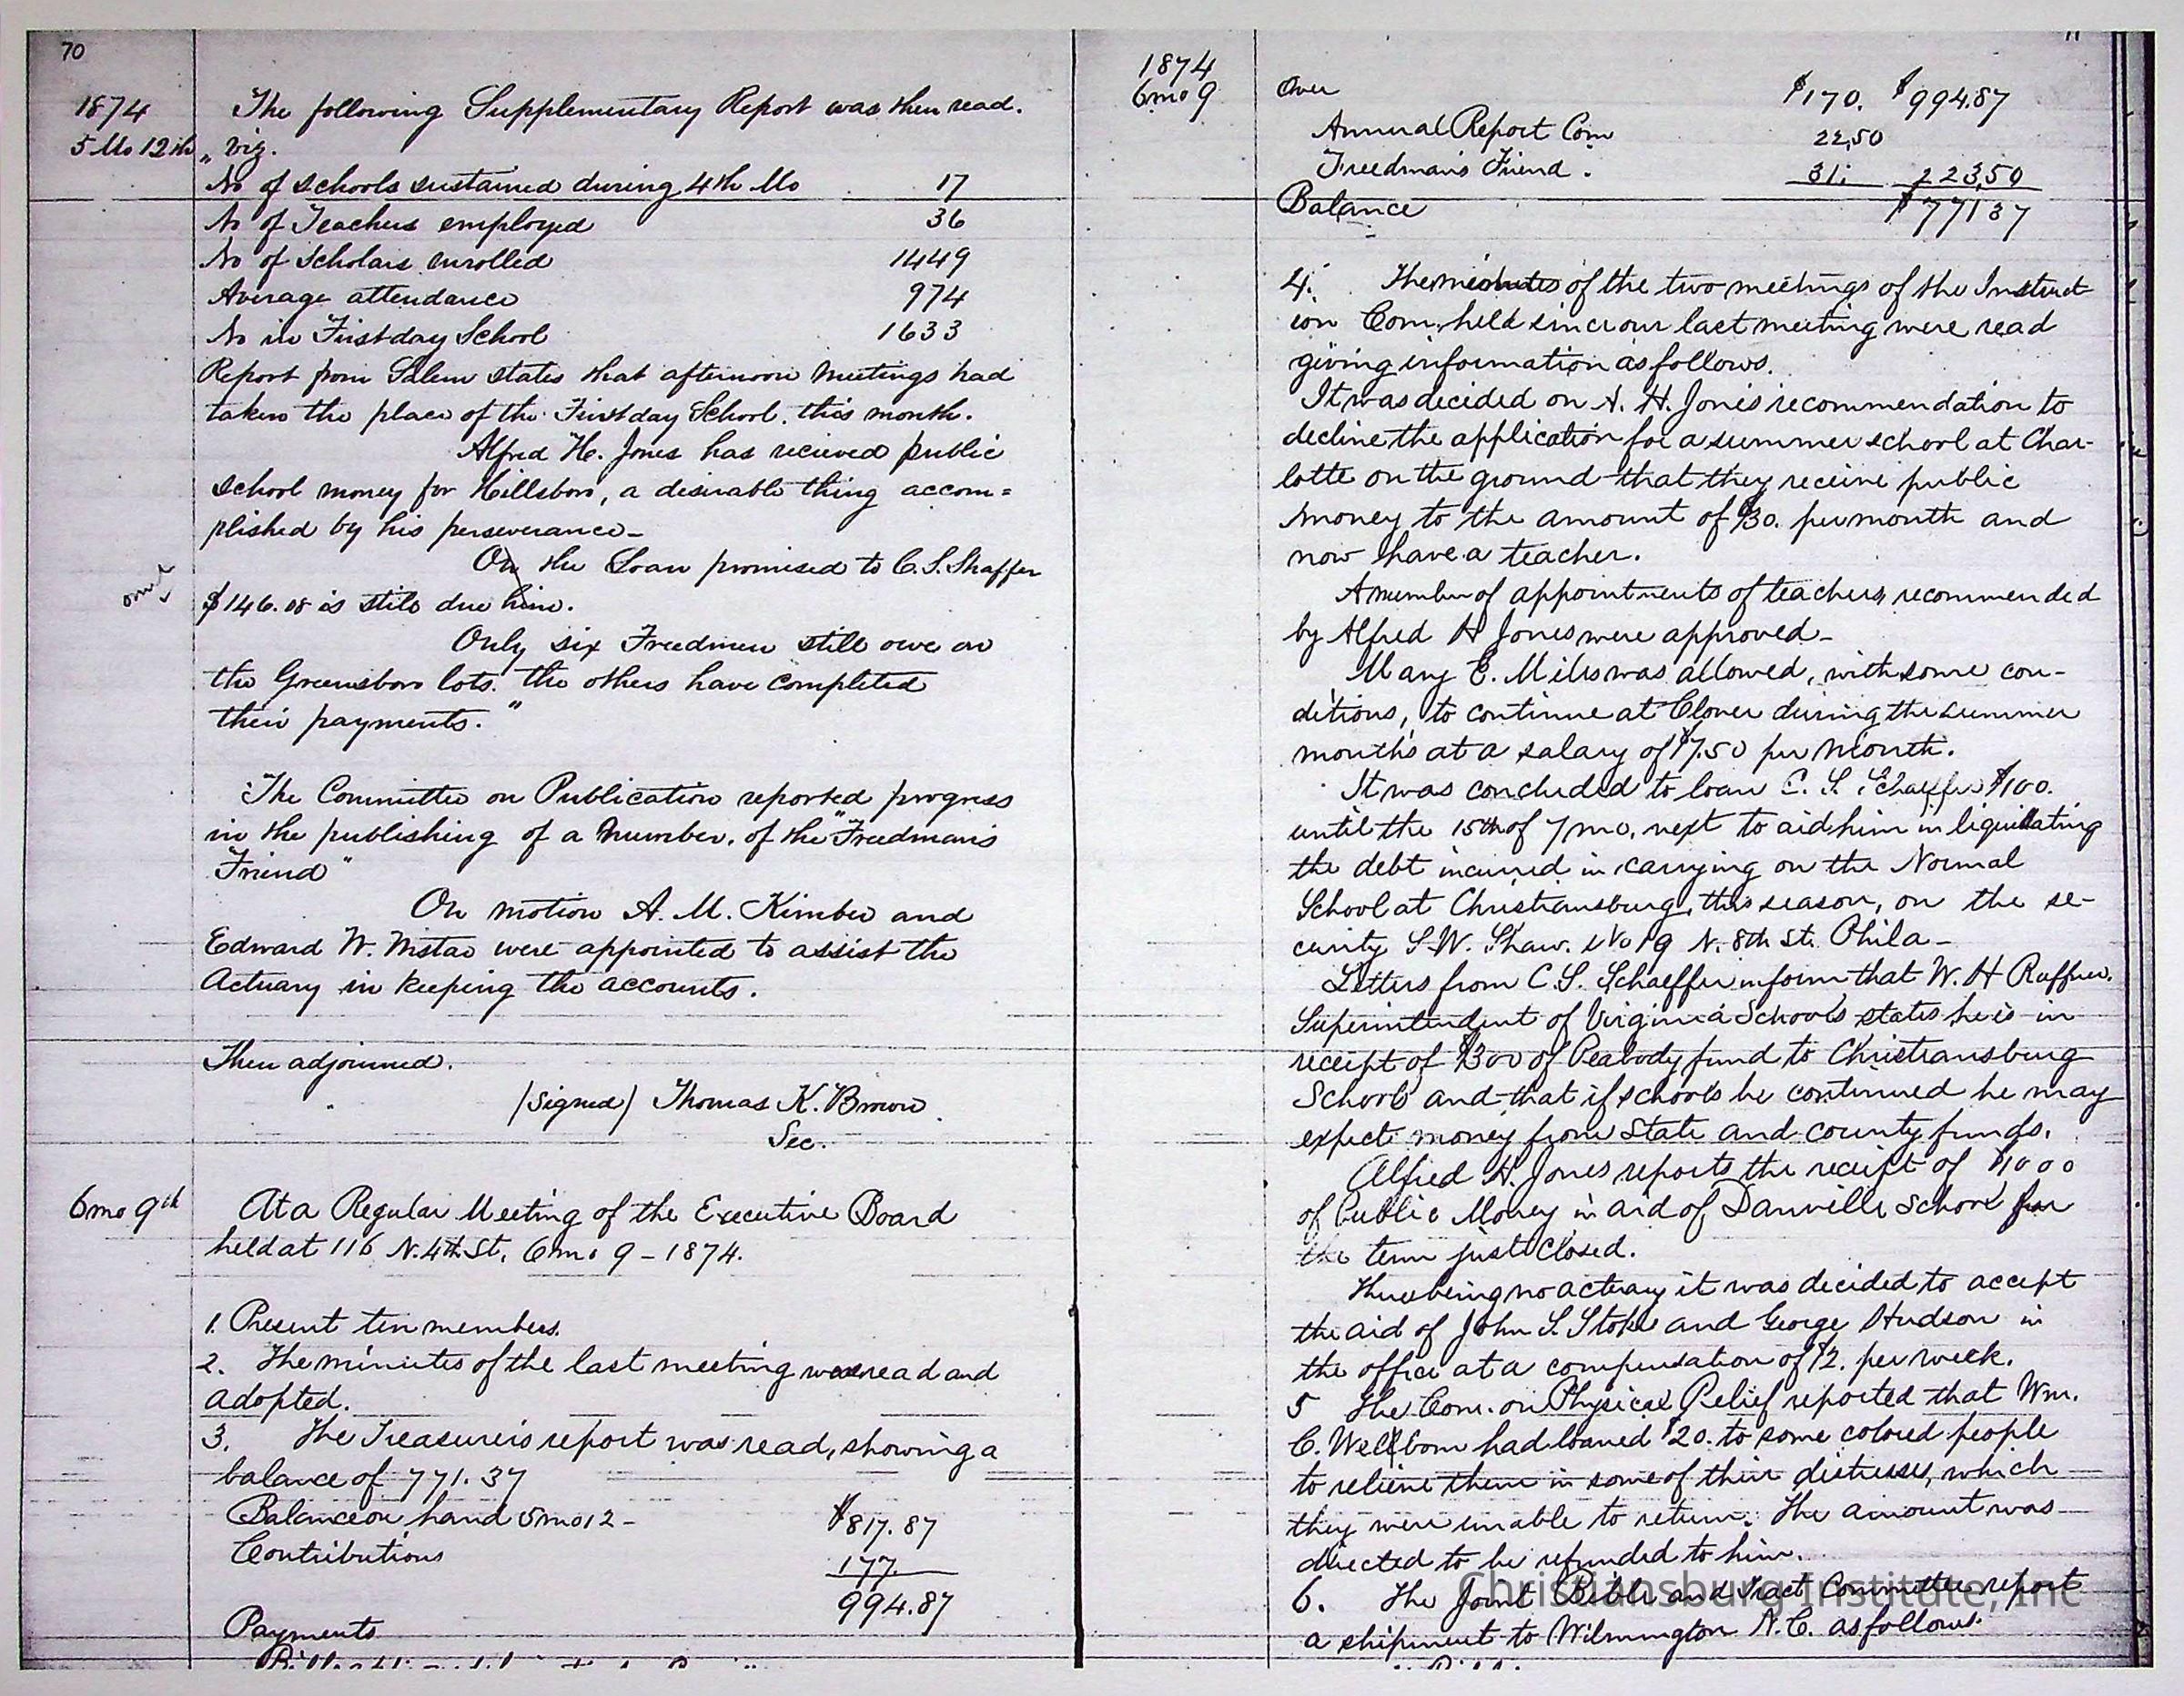 70
1874
5 Mo 12th
The following Supplementary Report was then read.
„ viz.
No of schools sustained during 4th Mo 17
No of Teachers employed 36
No of Scholars enrolled 1449
Average attendance 974
No in Firstday School 1633
Report from Salem states that afternoon Meetings had
taken the place of the Firstday School. this month.
Alfred H. Jones has recieved public
school money for Hillsboro, a desirable thing accom=
plished by his perseverance_
On the Loan promised to C. S. Shaffer
omit
$146.08 is still due him.
Only six Freedmen still owe on
the Greensboro lots. the others have completed
their payments."
The Committee on Publication reported progress
in the publishing of a Number. of the "Freedman's
Friend"
On motion A. M. Kimber and
Edward W. Wistar were appointed to assist the
Actuary in keeping the accounts.
Then adjourned.
(Signed) Thomas K. Brown
Sec.
6mo 9th
At a Regular Meeting of the Executive Board
held at 116 N. 4th St, 6mo 9 – 1874.
1. Present ten members.
2. The minutes of the last meeting were read and
adopted.
3. The Treasurer's report was read, showing a
balance of 771.37
Balance on hand 5mo 12 – $817.87
Contributions 177.
994.87
Payments
1874
6mo 9
Over $170. $994.87
Annual Report Com 22,50
Freedman's Friend . 31. 223,50
Balance $771 37
4. The minutes of the two meetings of the Instruct
ion Com. held since our last meeting were read
giving information as follows.
It was decided on A. H. Jones recommendation to
decline the application for a summer school at Char-
lotte on the ground that they receive public
money to the amount of $30. per month and
now have a teacher.
A number of appointments of teachers recommended
by Alfred H Jones were approved_
Mary E. Miles was allowed, with some con-
ditions, to continue at Clover during the summer
months at a salary of $7.50 per month.
It was concluded to loan C. S. Schaeffer $100.
until the 15th of 7mo, next to aid him in liquidating
the debt incurred in carrying on the Normal
School at Christiansburg, this season, on the se-
curity S. W. Shaw. No 19 N. 8th St. Phila_
Letters from C. S. Schaeffer inform that W. H Ruffner.
Superintendent of Virginia Schools states he is in
receipt of $300 of Peabody fund to Christiansburg
School and that if schools be continued he may
expect money from State and county funds.
Alfred H. Jones reports the receipt of $1000
of Public Money in aid of Danville School for
the term just closed.
There being no actuary it was decided to accept
the aid of John S. Stokes and George Hudson in
the office at a compensation of $12. per week.
5 The Com. on Physical Relief reported that Wm.
C. Wellborn had loaned $20. to some colored people
to relieve them in some of their distresses, which
they were unable to return. The amount was
directed to be refunded to him.
6. The Joint Bible and Tract Committee report
a shipment to Wilmington N. C. as follows.
Christiansburg Institute, Inc